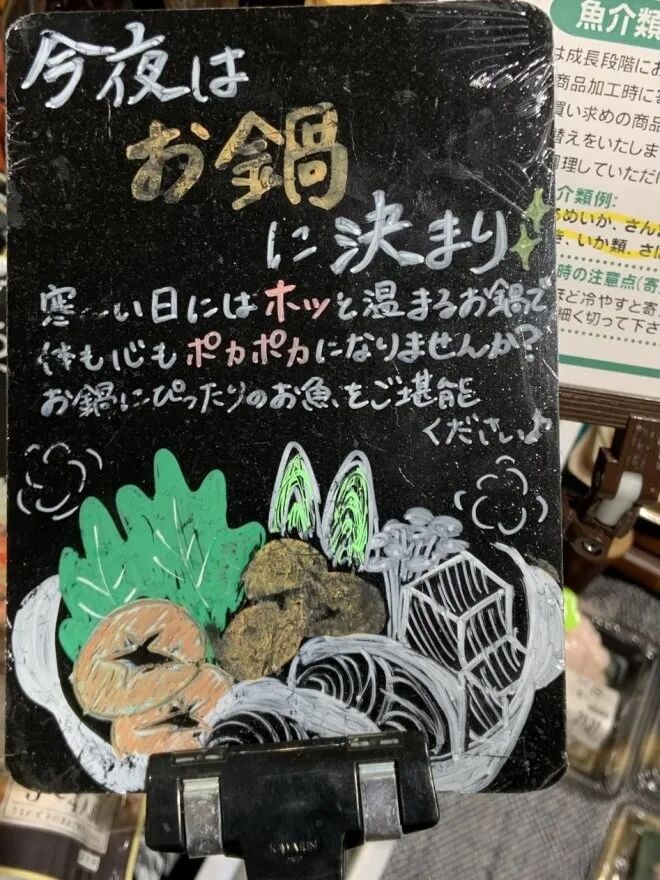 今夜は
お鍋
に決まり
寒〜い日にはホッと温まるお鍋で
体も心もポカポカになりませんか?
お鍋にぴったりのお魚をご堪能
ください♪
魚介類
は成長段階にお
商品加工時に
買い求めの商品
替えをいたしま
調理していただけ
介類例:
るめいか、さん
き、いか類、さば
時の注意点(寄
ほど冷やすと寄
細く切って下さ